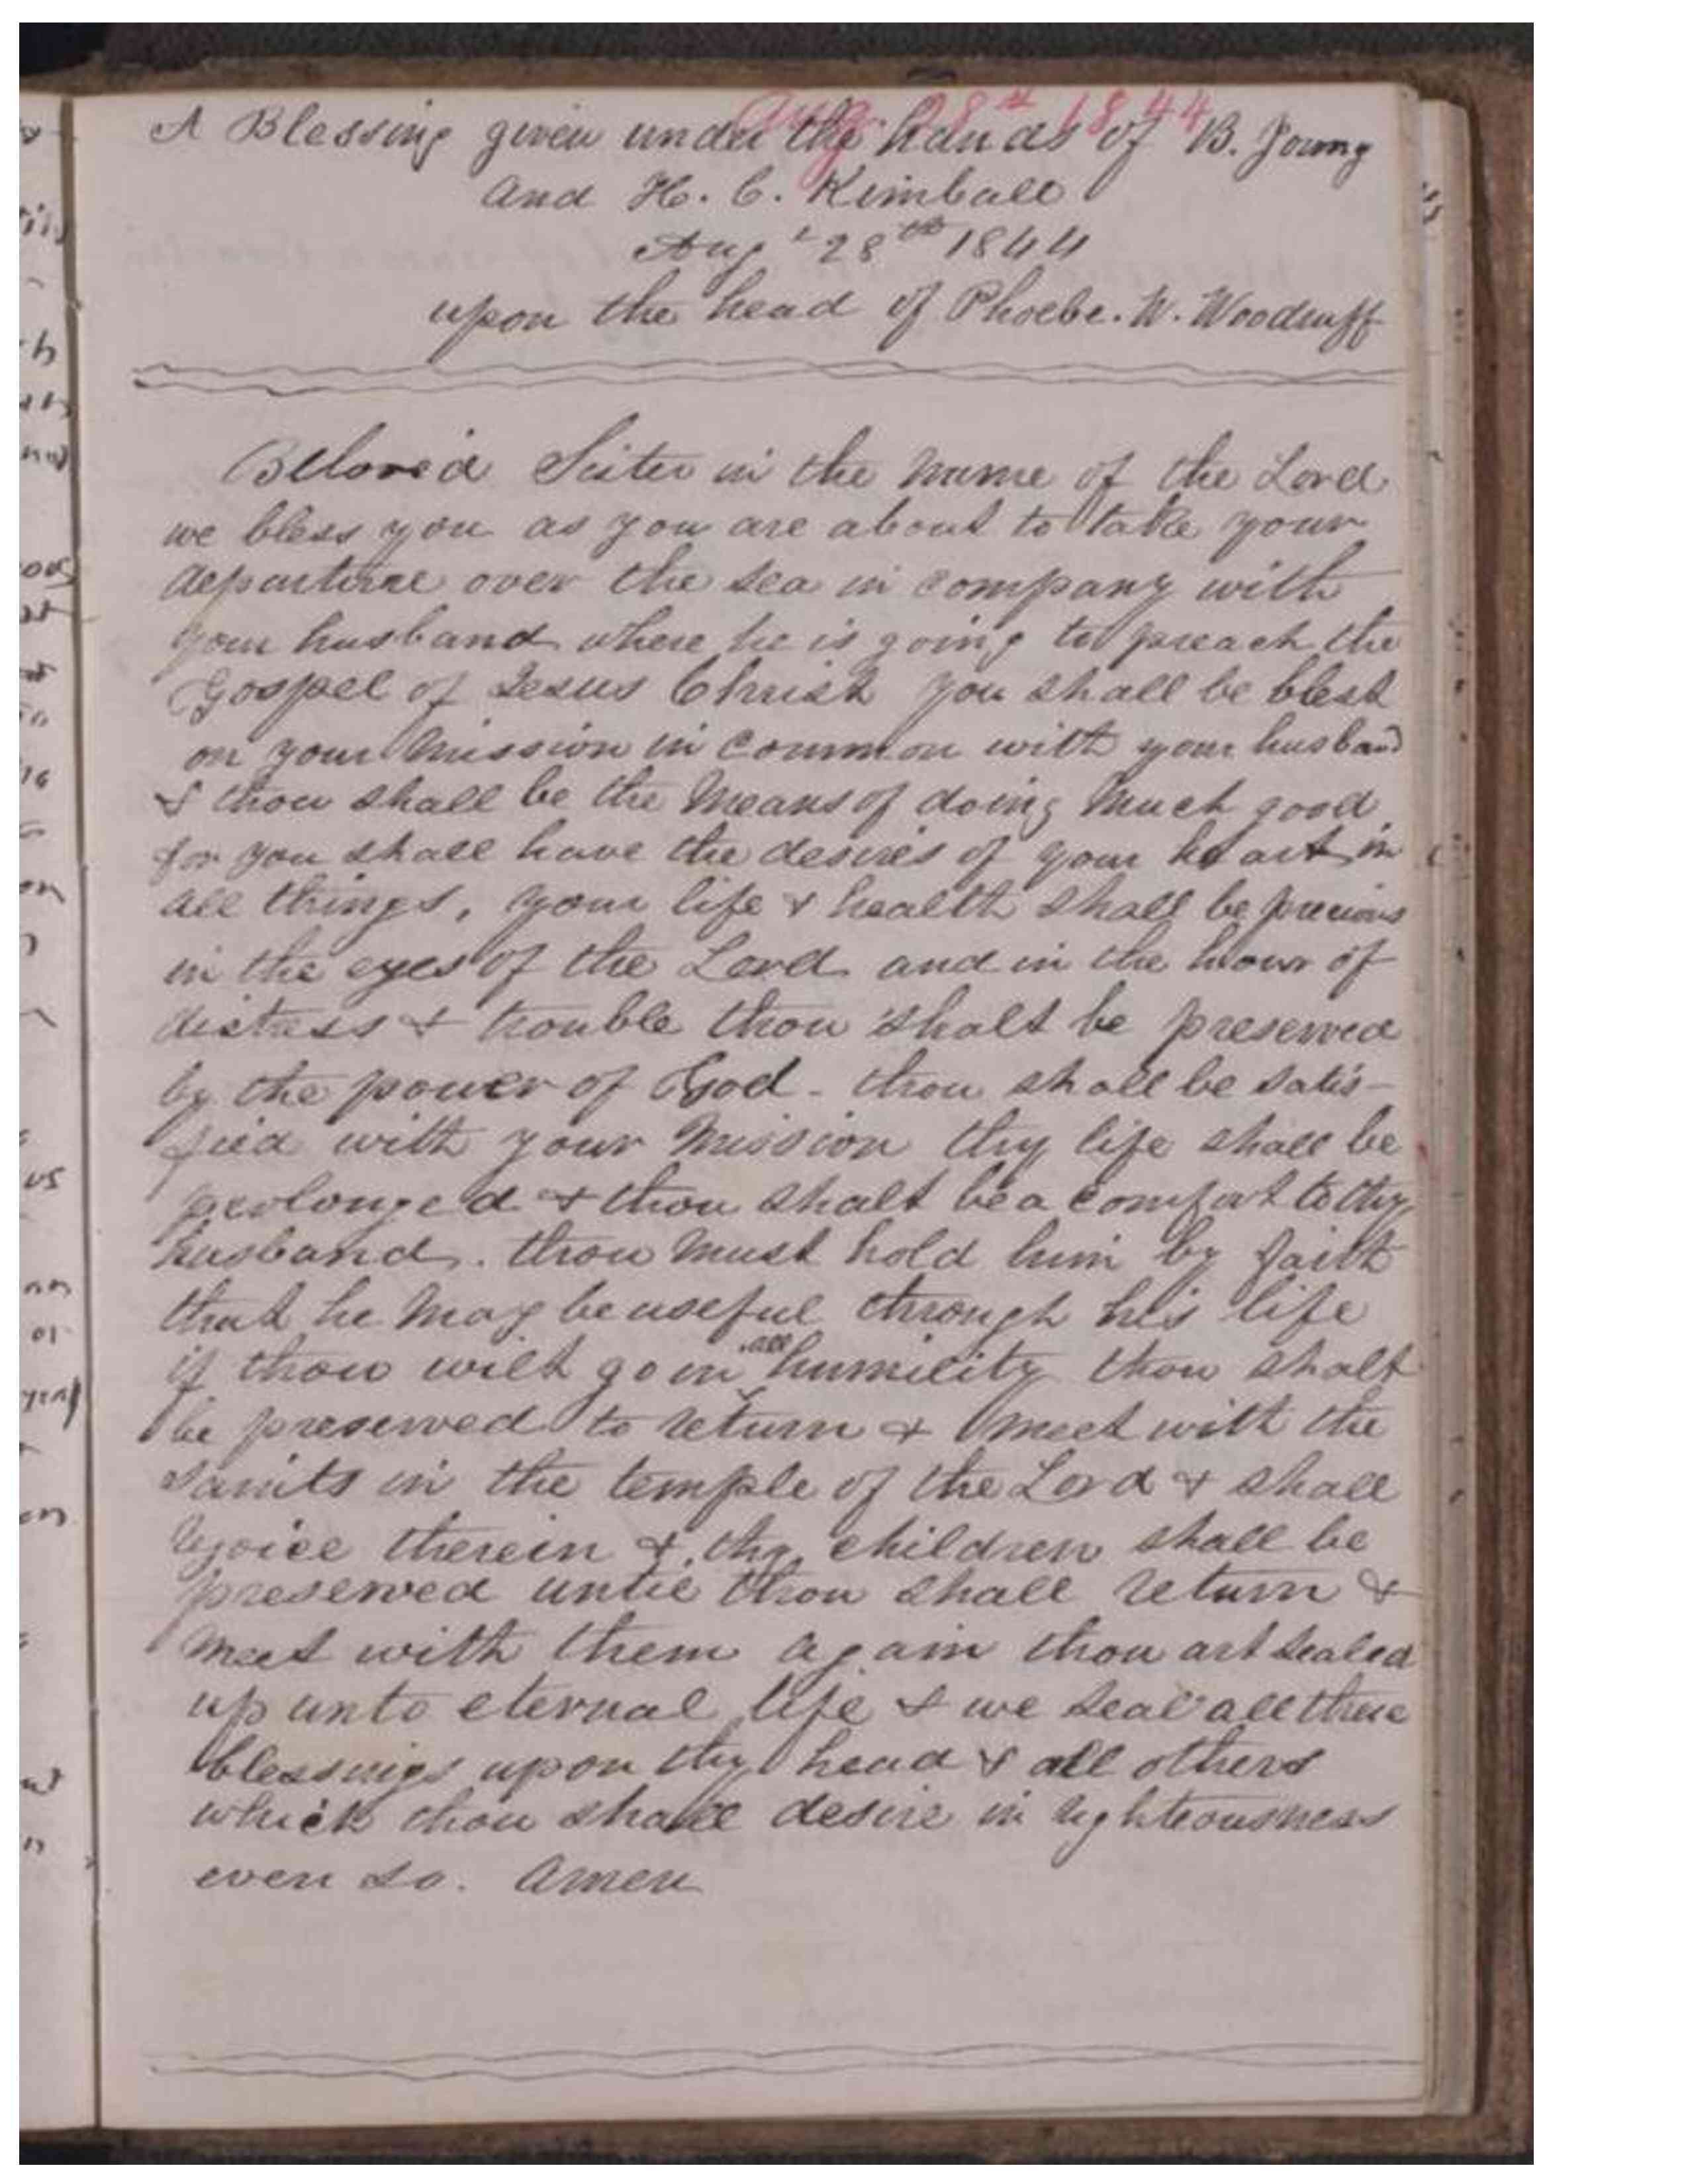 Aug. 28th 1844
A Blessing given under the hands of B. Young
and H. C. Kimball
Augt 28th 1844
upon the head of Phoebe. W. Woodruff
Beloved Sister in the name of the Lord
we bless you as you are about to take your
departure over the sea in company with
your husband where he is going to preach the
Gospel of Jesus Christ you shall be blest
on your mission in common with your husband
& thou shall be the means of doing much good
for you shall have the desires of your heart in
all things, your life & health shall be precious
in the eyes of the Lord and in the hour of
distress & trouble thou shalt be preserved
by the power of God - thou shall be satis-
fied with your mission thy life shall be
prolonged & thou shalt be a comfort to thy
husband. thou must hold him by faith
that he may be useful through his life
if thou wilt go in all humility thou shalt
be preserved to return & meet with the
saints in the temple of the Lord & shall
rejoice therein & thy children shall be
preserved until thou shall return &
meet with them again thou art sealed
up unto eternal life & we seal all these
blessings upon thy head & all others
which thou shall desire in righteousness
even so. Amen